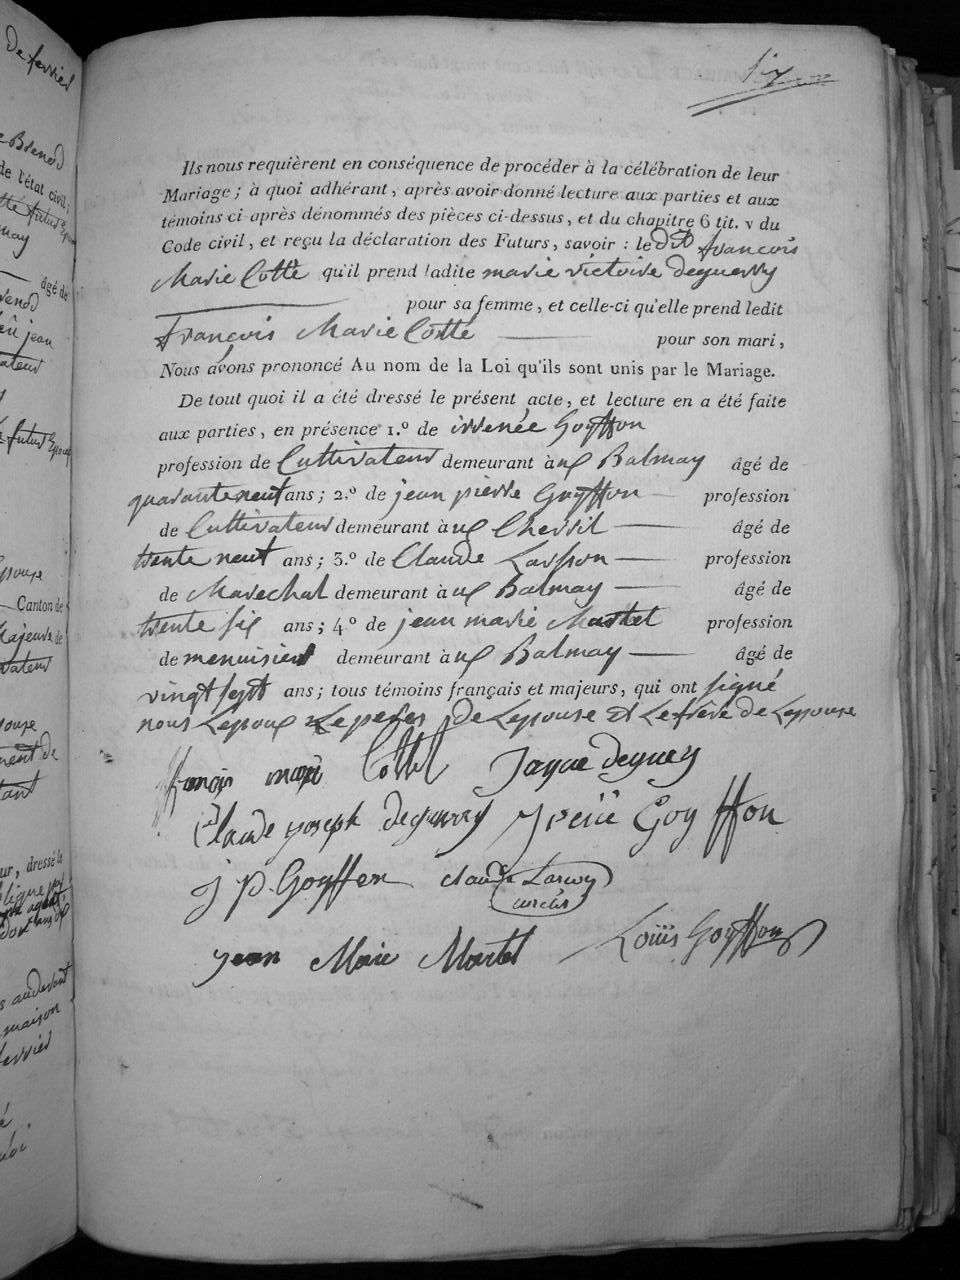 De fevrier
Brenod
de l'état civil;
âgé de
jean
Canton de
majeure de
dressé le
au devant
maison
fevrier
Ils nous requièrent en conséquence de procéder à la célébration de leur
Mariage; à quoi adhérant, après avoir donné lecture aux parties et aux
témoins ci-après dénommés des pièces ci-dessus, et du chapitre 6 tit. v du
Code civil, et reçu la déclaration des Futurs, savoir : le dit francois
Marie Cotte qu'il prend ladite marie victoire deguerry
pour sa femme, et celle-ci qu'elle prend ledit
francois Marie Cotte pour son mari,
Nous avons prononcé Au nom de la Loi qu'ils sont unis par le Mariage.
De tout quoi il a été dressé le présent acte, et lecture en a été faite
aux parties, en présence 1.º de irenée Goyffon
profession de Cultivateur demeurant à au Balmay âgé de
quarante neuf ans; 2.º de jean pierre Goyffon profession
de Cultivateur demeurant à au Chevril âgé de
trente neuf ans; 3.º de Claude profession
de Marechal demeurant à au Balmay âgé de
trente six ans; 4.º de jean marie Martel profession
de menuisier demeurant à au Balmay âgé de
vingt sept ans; tous témoins français et majeurs, qui ont signé
nous Lepoux Le peres de Lepouse et Le frère de Lepouse
francois marie Cottet
Claude joseph deguerry Irenii Goyffon
J P Goyffon claude
jean Marie Martel Louis Goyffon